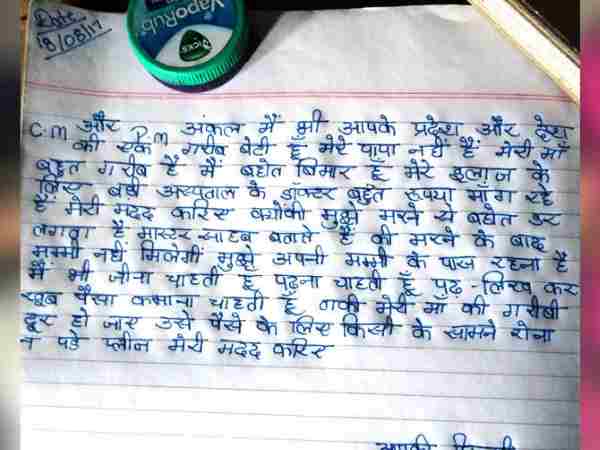 Date
18/08/17
VapoRub
VICKS
C.M और P.M अंकल मैं भी आपके प्रदेश और देश
की एक गरीब बेटी हूँ मेरे पापा नहीं हैं मेरी माँ
बहुत गरीब हैं मैं बहोत बिमार हूँ मेरे इलाज के
लिए बड़े अस्पताल के डॉक्टर बहुत रुपया माँग रहे
हैं मेरी मदद करिए क्योंकी मुझे मरने से बहोत डर
लगता है मास्टर साहब बताते हैं की मरने के बाद
मम्मी नहीं मिलेगीं मुझे अपनी मम्मी के पास रहना है
मैं भी जीना चाहती हूँ पढ़ना चाहती हूँ पढ़-लिख कर
खूब पैसा कमाना चाहती हूँ ताकी मेरी माँ की गरीबी
दूर हो जाए उसे पैसे के लिए किसी के सामने रोना
न पडे प्लीज मेरी मदद करिए
आपकी